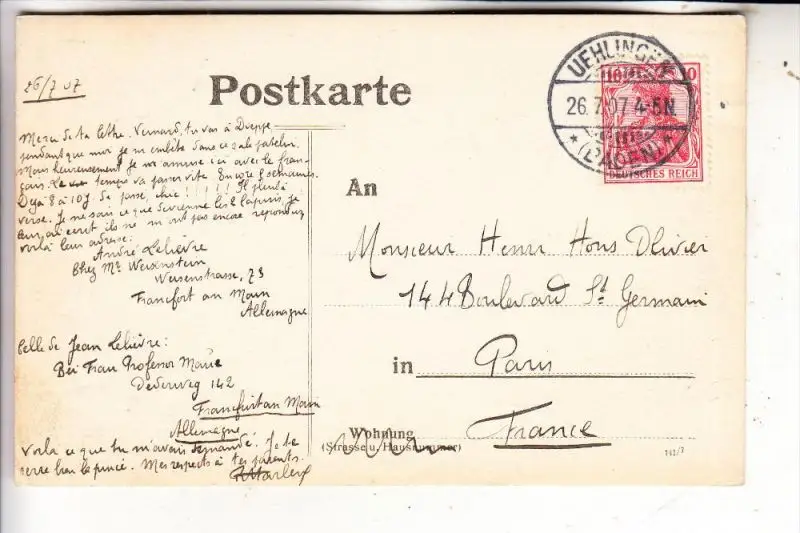 26/7 07
Postkarte
UEHLINGEN
26.7.07.4-5N.
* (BADEN) *
10 10
DEUTSCHES REICH
Merci de ta lettre. Veinard, tu vas à Dieppe
pendant que moi je m'embête dans ce sale patelin.
Mais heureusement je m'amuse ici avec le fran-
çais. Le temps va passer vite Encore 8 semaines.
Déjà 8 à 10 j de passé, chic ! ! ! ! ! ! Il pleut à
verse. Je ne sais ce que deviennent les 2 lapins, je
leur ai écrit ils ne m'ont pas encore répondu
voilà leur adresse:
André Lelièvre
Chez Mr Weisenstein
Weserstrasse, 73
Francfort am Main
Allemagne
Celle de Jean Lelièvre:
Bei Frau Professor
Oederweg 142
Francfurt am Main
Allemagne
Voilà ce que tu m'avais demandé. Je te
serre bien la pince. Mes respects à tes parents.
An
Monsieur Henri Olivier
144 Boulevard St Germain
in Paris
France
Wohnung
(Strasse u. Hausnummer)